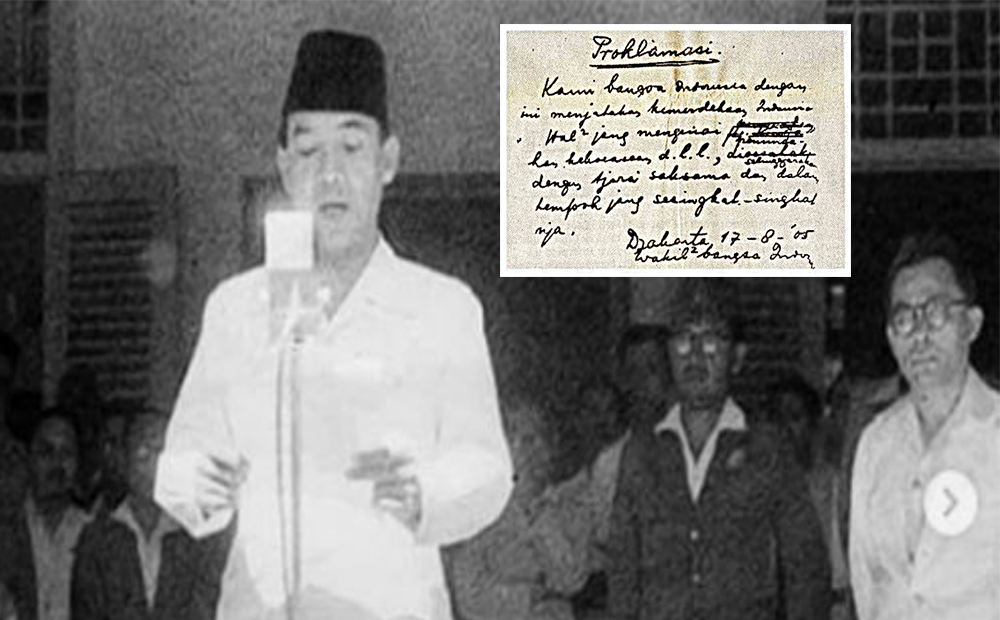 Proklamasi.
Kami bangsa Indonesia dengan
ini menjatakan kemerdekaan Indonesia
. Hal² jang mengenai
kekoeasaan d.l.l., dioesahakan
selenggarakan
dengan tjara saksama dan dalam
tempoh jang sesingkat-singkat
nja.
Djakarta, 17 - 8 - '05
Wakil² bangsa Indon